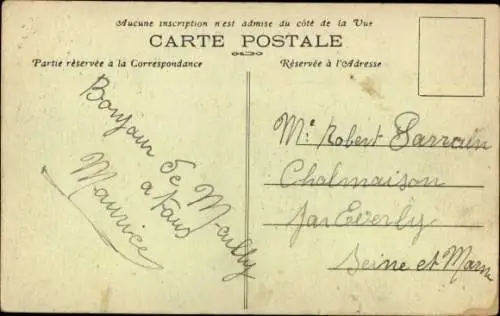 Aucune inscription n'est admise du côté de la Vue
CARTE POSTALE
Partie réservée a la Correspondance
Réservée à l'Adresse
Bonjour de Mailly
a tous
Maurice
Mr Robert Parrain
Chalmaison
par Everly
Seine et Marne